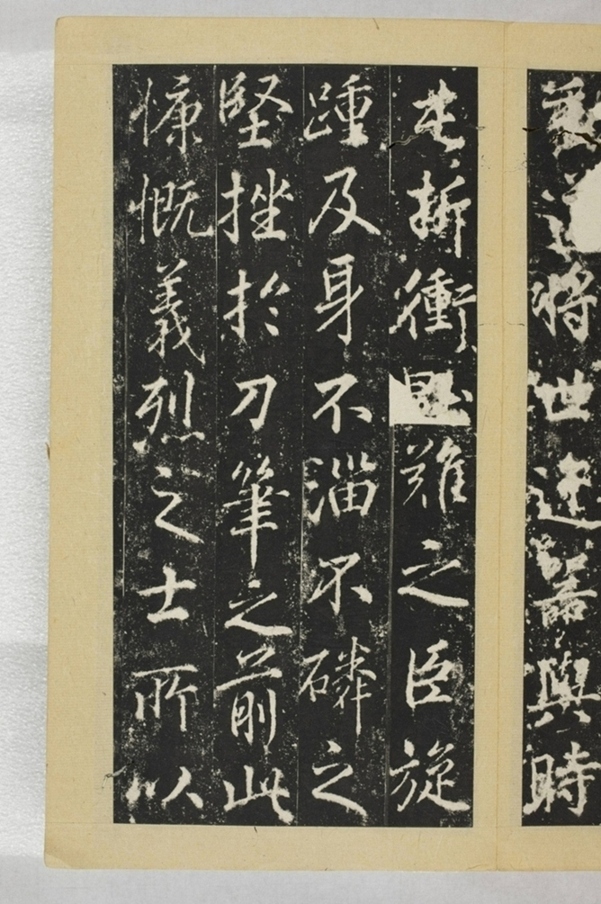 將世違器與時
折衝難之臣旋
踵及身不淄不磷之
堅挫於刀筆之前此
慷慨義烈之士所以